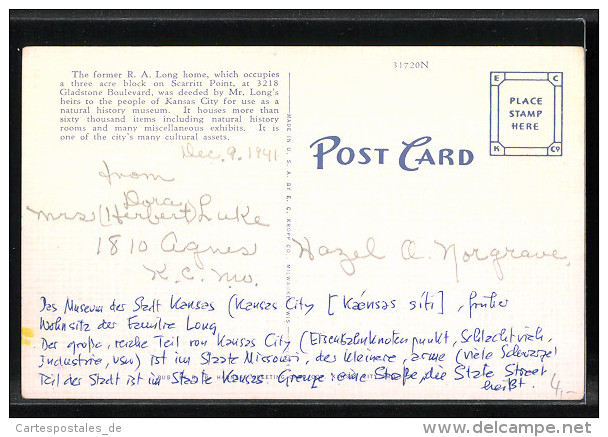 The former R. A. Long home, which occupies
a three acre block on Scarritt Point, at 3218
Gladstone Boulevard, was deeded by Mr. Long's
heirs to the people of Kansas City for use as a
natural history museum. It houses more than
sixty thousand items including natural history
rooms and many miscellaneous exhibits. It is
one of the city's many cultural assets.
31720N
E C
PLACE
STAMP
HERE
K Co
POST CARD
MADE IN U. S. A. BY E. C. KROPP CO. MILWAUKEE, WIS.
Dec. 9. 1941
from
Dora
Mrs (Herbert) Luke
1810 Agnes
K.C. Mo.
Hazel A. Norgrave,
Das Museum der Stadt Kansas (Kansas City [Kaensas siti], früher
Wohnsitz der Familie Long
Der große, reiche Teil von Kansas City (Eisenbahnknotenpunkt, Schlachtvieh,
Industrie, usw) ist im Staate Missouri, der kleinere, arme (viele Schwarze)
Teil der Stadt ist im Staate Kansas. Grenze: eine Straße, die State Street
heißt.
4,-
Cartespostales_de
www.delcampe.net